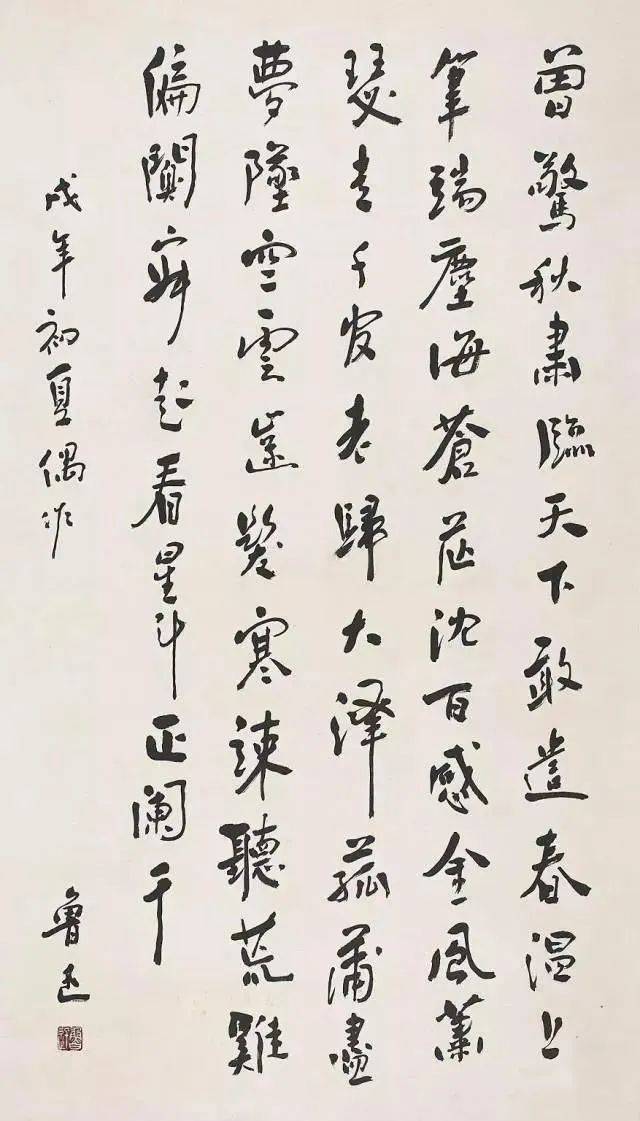 曾驚秋肅臨天下敢遣春温上
筆端塵海蒼茫沈百感金風蕭
瑟走千官老歸大澤菰蒲盡
夢墜空雲齒髮寒竦聽荒雞
偏闃寂起看星斗正闌干
戌年初夏偶作
魯迅